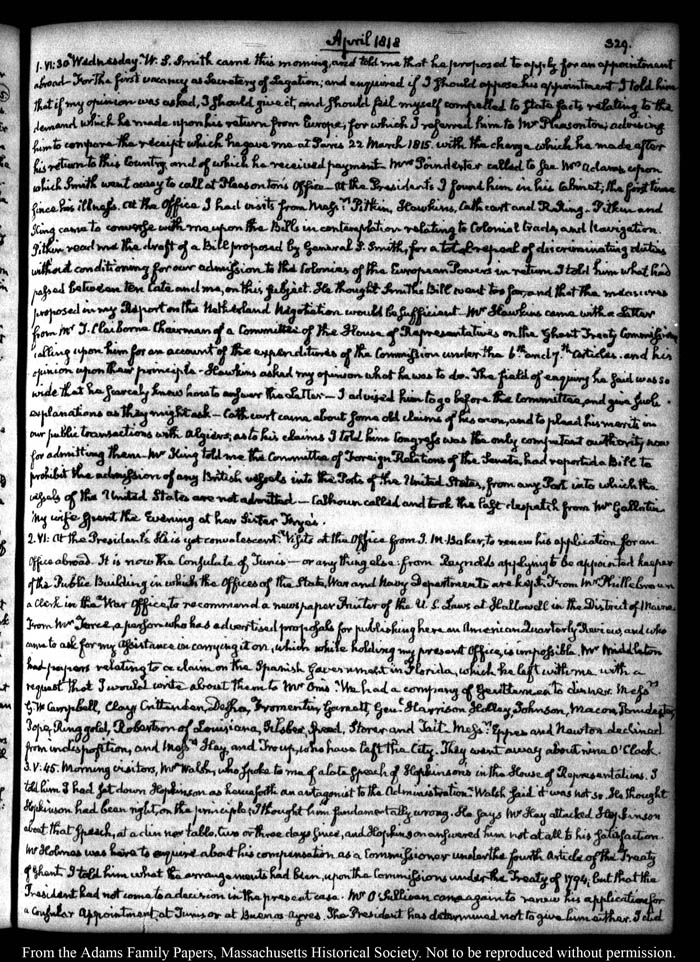 April 1818
329.
1. VI:30 Wednesday. W. S. Smith came this morning, and told me that he proposed to apply for an appointment
abroad—For the first vacancy as Secretary of Legation; and enquired if I should oppose his appointment. I told him
that if my opinion was asked, I should give it, and should feel myself compelled to state facts relating to the
demand which he made upon his return from Europe; for which I referred him to Mr Pleasonton; advising
him to compare the receipt which he gave me at Paris 22 March 1815. with the charge which he made after
his return to this Country and of which he received payment. Mrs Poindexter called to see Mrs Adams, upon
which Smith went away to call at Pleasonton's Office—At the President's I found him in his Cabinet, the first time
since his illness. At the Office I had visits from Messrs Pitkin, Hawkins, Cathcart and R. King. Pitkin and
King came to converse with me upon the Bills in contemplation relating to Colonial trade, and Navigation.
Pitkin read me the draft of a Bill proposed by General S. Smith, for a total repeal of discriminating duties
without conditioning for our admission to the Colonies of the European Powers in return. I told him what had
passed between ten Cate and me, on this subject. He thought Smith's Bill went too far, and that the measures
proposed in my Report on the Netherland Negotiation would be sufficient. Mr Hawkins came with a Letter
from Mr T. Claiborne Chairman of a Committee of the House of Representatives on the Ghent Treaty Commissions
calling upon him for an account of the expenditures of the Commission under the 6th and 7th Articles. and his
opinion upon their principle—Hawkins asked my opinion what he was to do. The field of enquiry he said was so
wide that he scarcely knew how to answer the Letter—I advised him to go before the Committee, and give such
explanations as they might ask—Cathcart came about some old claims of his own, and to plead his merit in
our public transactions with Algiers; as to his claims I told him Congress was the only competent authority now
for admitting them—Mr King told me the Committee of Foreign Relations of the Senate, had reported a Bill to
prohibit the admission of any British vessels into the Ports of the United States, from any Port into which the
vessels of the United States are not admitted—Calhoun called and took the last despatch from Mr Gallatin
My wife spent the Evening at her Sister Frye's.
2. VI: At the President's. He is yet convalescent. Visits at the Office from I. M. Baker, to renew his application for an
Office abroad. It is now the Consulate of Tunis—or any thing else. from Reynolds applying to be appointed keeper
of the Public Building in which the Offices of the State, War and Navy Departments are kept. From Mr
a Clerk in the War Office, to recommend a newspaper Printer of the U.S. Laws at Hallowell in the District of Maine
From Mr Force, a person who has advertised proposals for publishing here an American Quarterly Review, and who
came to ask for my assistance in carrying it on, which while holding my present Office, is impossible. Mr Middleton
had papers relating to a claim on the Spanish Government in Florida, which he left with me with a
request that I would write about them to Mr Onis. We had a company of Gentlemen to dinner. Messrs
G. W. Campbell, Clay, Crittenden, Desha, Fromentin, Garnett, Genl Harrison, Holley, Johnson, Macon, Poindexter,
Pope, Ringgold, Robertson of Louisiana, Silsbee, Storer and Tait. Messrs Eppes and Newton declined
from indisposition, and Messrs Hay, and Troup, who have left the City. They went away about nine O'Clock.
3. V:45. Morning visitors, Mr Walsh, who spoke to me of a late speech of Hopkinson's in the House of Representatives. I
told him I had set down Hopkinson as henceforth an antagonist to the Administration. Walsh said it was not so. He thought
Hopkinson had been right, on the principle; I thought him fundamentally wrong. He says Mr Hay attacked Hopkinson
about that Speech, at a dinner table, two or three days since, and Hopkinson answered him not at all to his satisfaction.
Mr Holmes was here to enquire about his compensation as a Commissioner under the fourth Article of the Treaty
of Ghent. I told him what the arrangements had been, upon the Commissions under the Treaty of 1794, but that the
President had not come to a decision in the present case. Mr O'Sullivan came again to renew his application for
a Consular Appointment, at Tunis or at Buenos Ayres. The President has determined not to give him either. I did
From the Adams Family Papers, Massachusetts Historical Society. Not to be reproduced without permission.